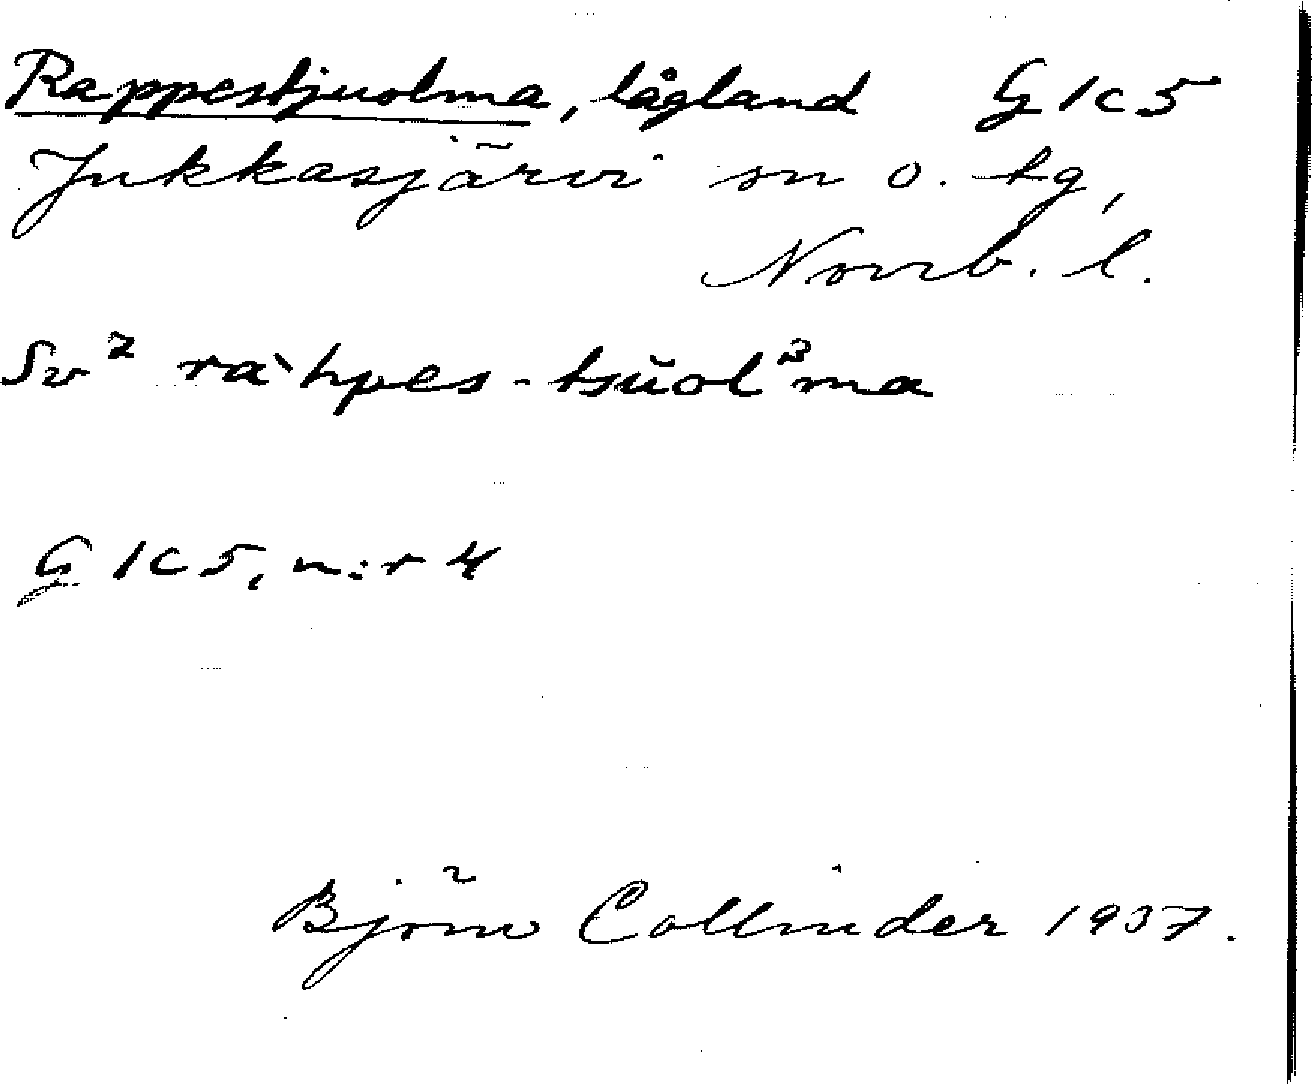 Rappestjuolma, lågland G 1c 5
Jukkasjärvi sn o. tg,
Norrb. l.
Sv² ra`hpes-tsŭol³ma
G 1c 5, n:r 4
Björn Collinder 1937.